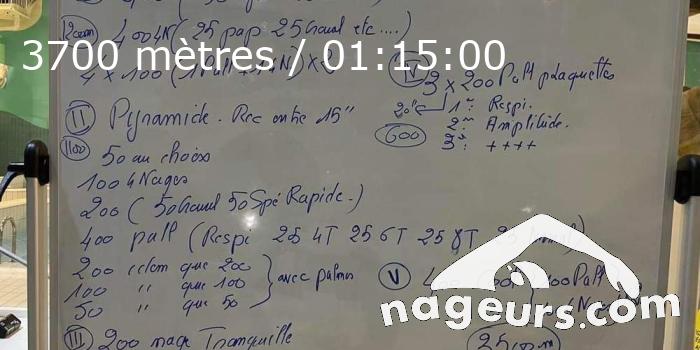 400 4N (25 pap 25 crawl etc....)
3700 mètres / 01:15:00
4 x 100
II Pyramide. Rec entre 15"
1100
50 au choix
100 4 Nages
200 (50 crawl 50 Spé Rapide.)
400 pull (Respi 25 4T 25 6T 25 8T 25
200 idem que 200
100 " que 100
50 " que 50
avec palmes
III 200 nage Tranquille
IV 3 x 200 Pull plaquettes
20" 1er: Respi.
600 2em: Amplitude.
3e: ++++
V
nageurs.com